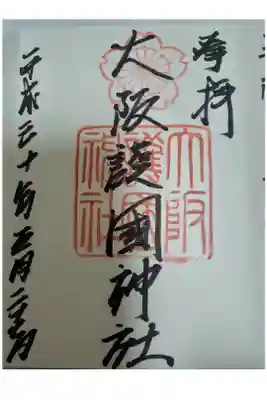 奉拝
大阪護國神社
平成三十年五月二十六日
大阪護國神社